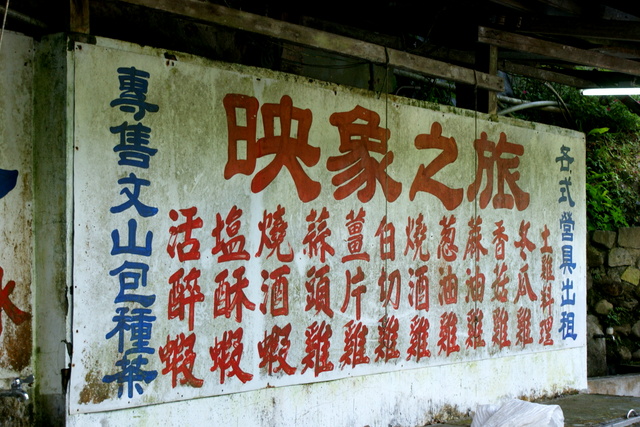 映象之旅
各式營具出租
土雞料理
冬瓜雞
香菇雞
麻油雞
蔥油雞
燒酒雞
白切雞
薑片雞
蒜頭雞
燒酒蝦
塩酥蝦
活醉蝦
專售文山包種茶